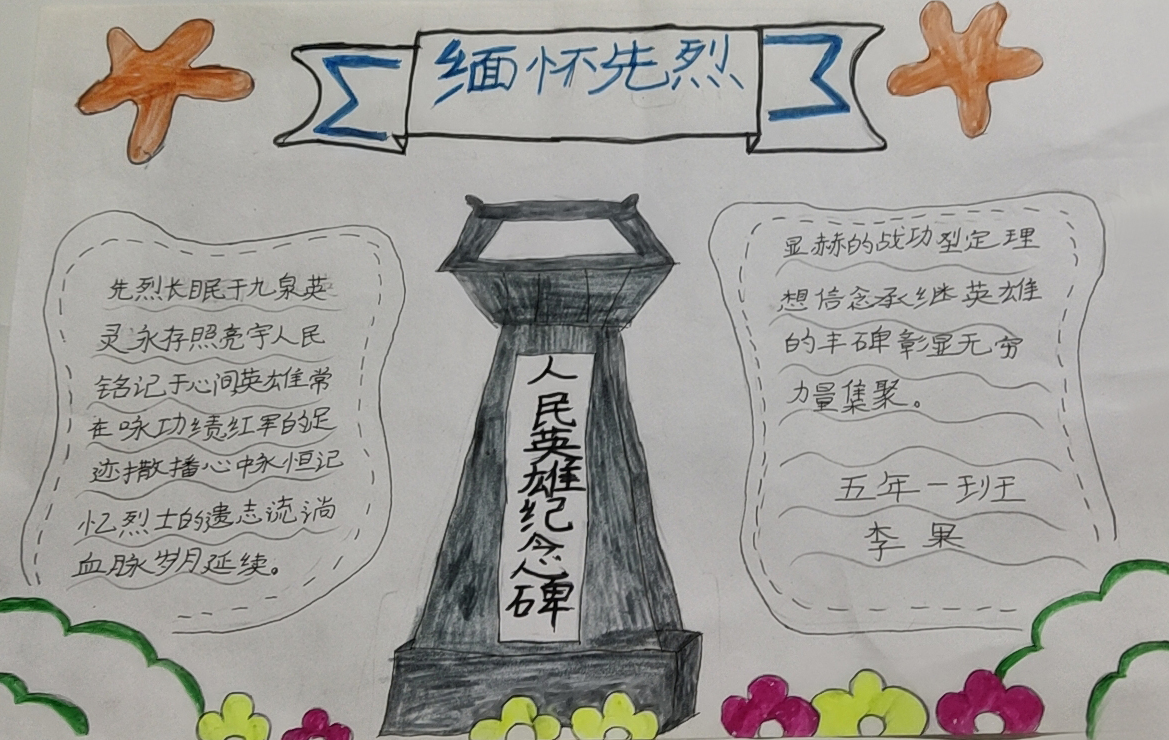 缅怀先烈
先烈长眠于九泉英
灵永存照亮宇人民
铭记于心间英雄常
在咏功绩红军的足
迹撒播心中永恒记
忆烈士的遗志流淌
血脉岁月延续。
人民英雄纪念碑
显赫的战功型定理
想信念承继英雄
的丰碑彰显无穷
力量集聚。
五年一班王
李果